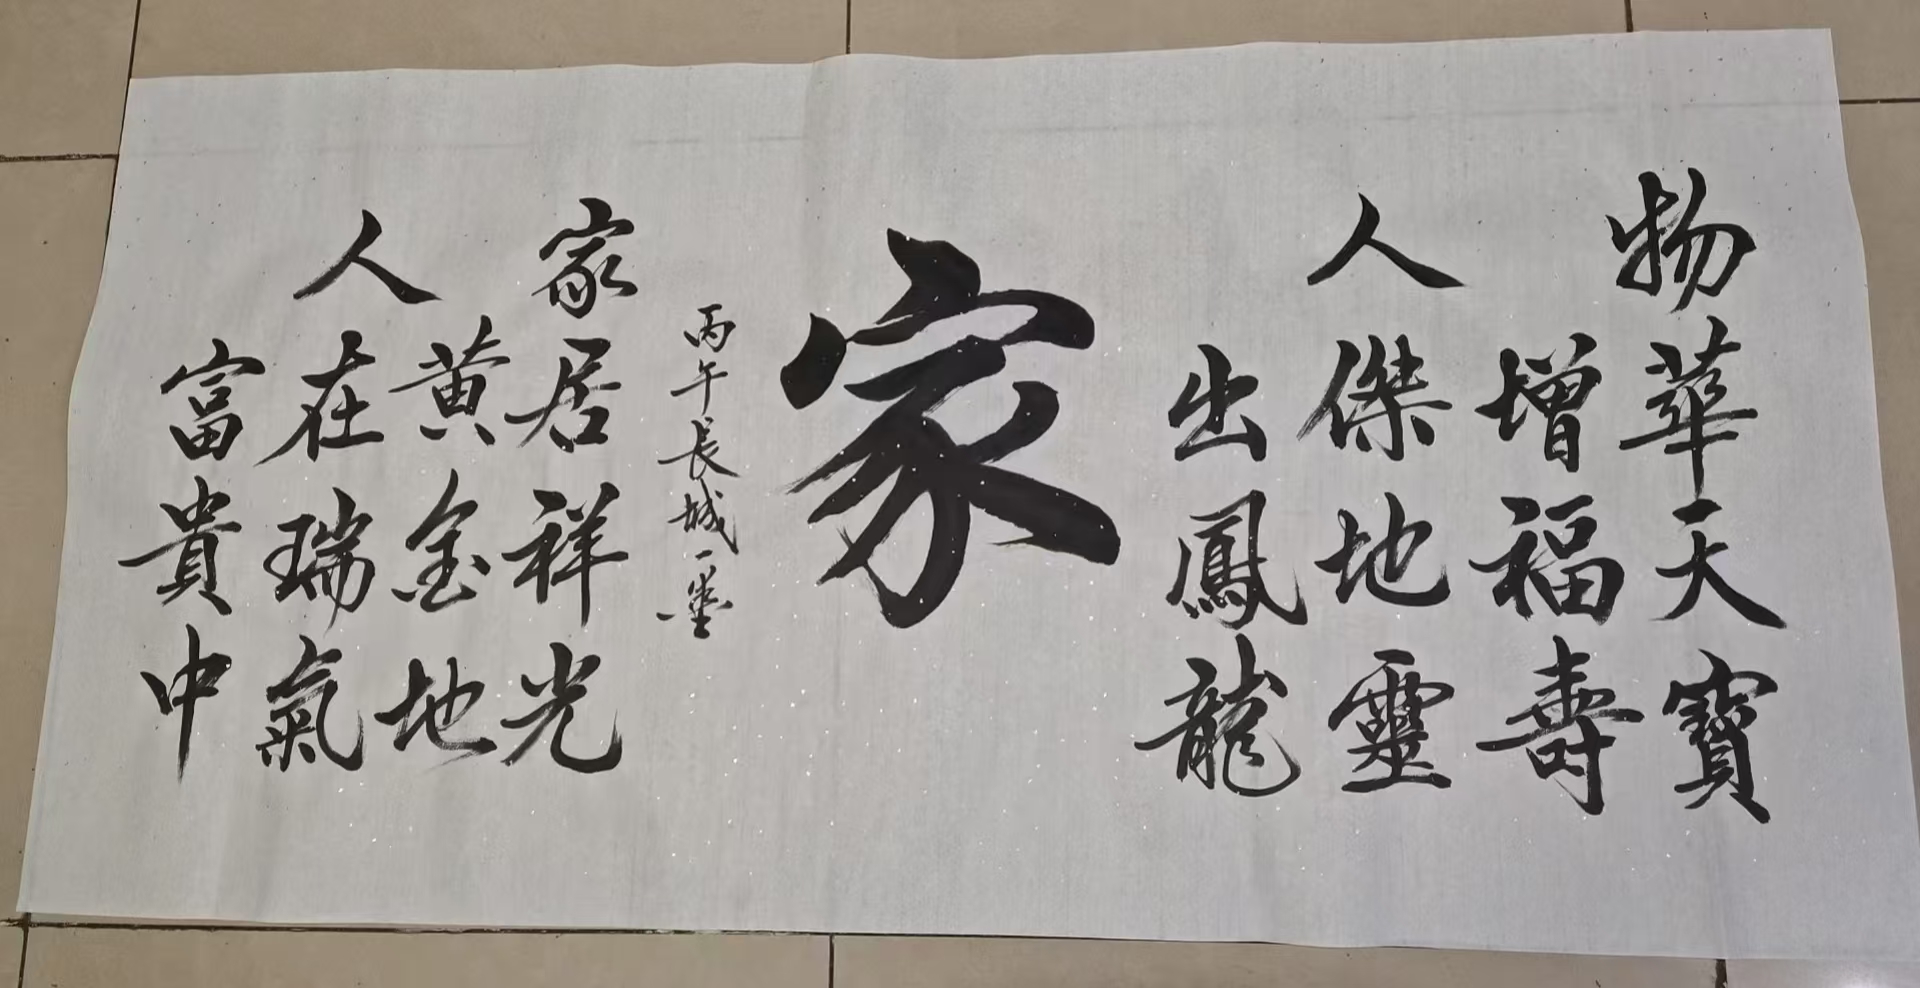 物華天寶
增福壽
人傑地靈
出鳳龍
家
丙午長城一墨
家居祥光
黄金地
人在瑞氣
富貴中